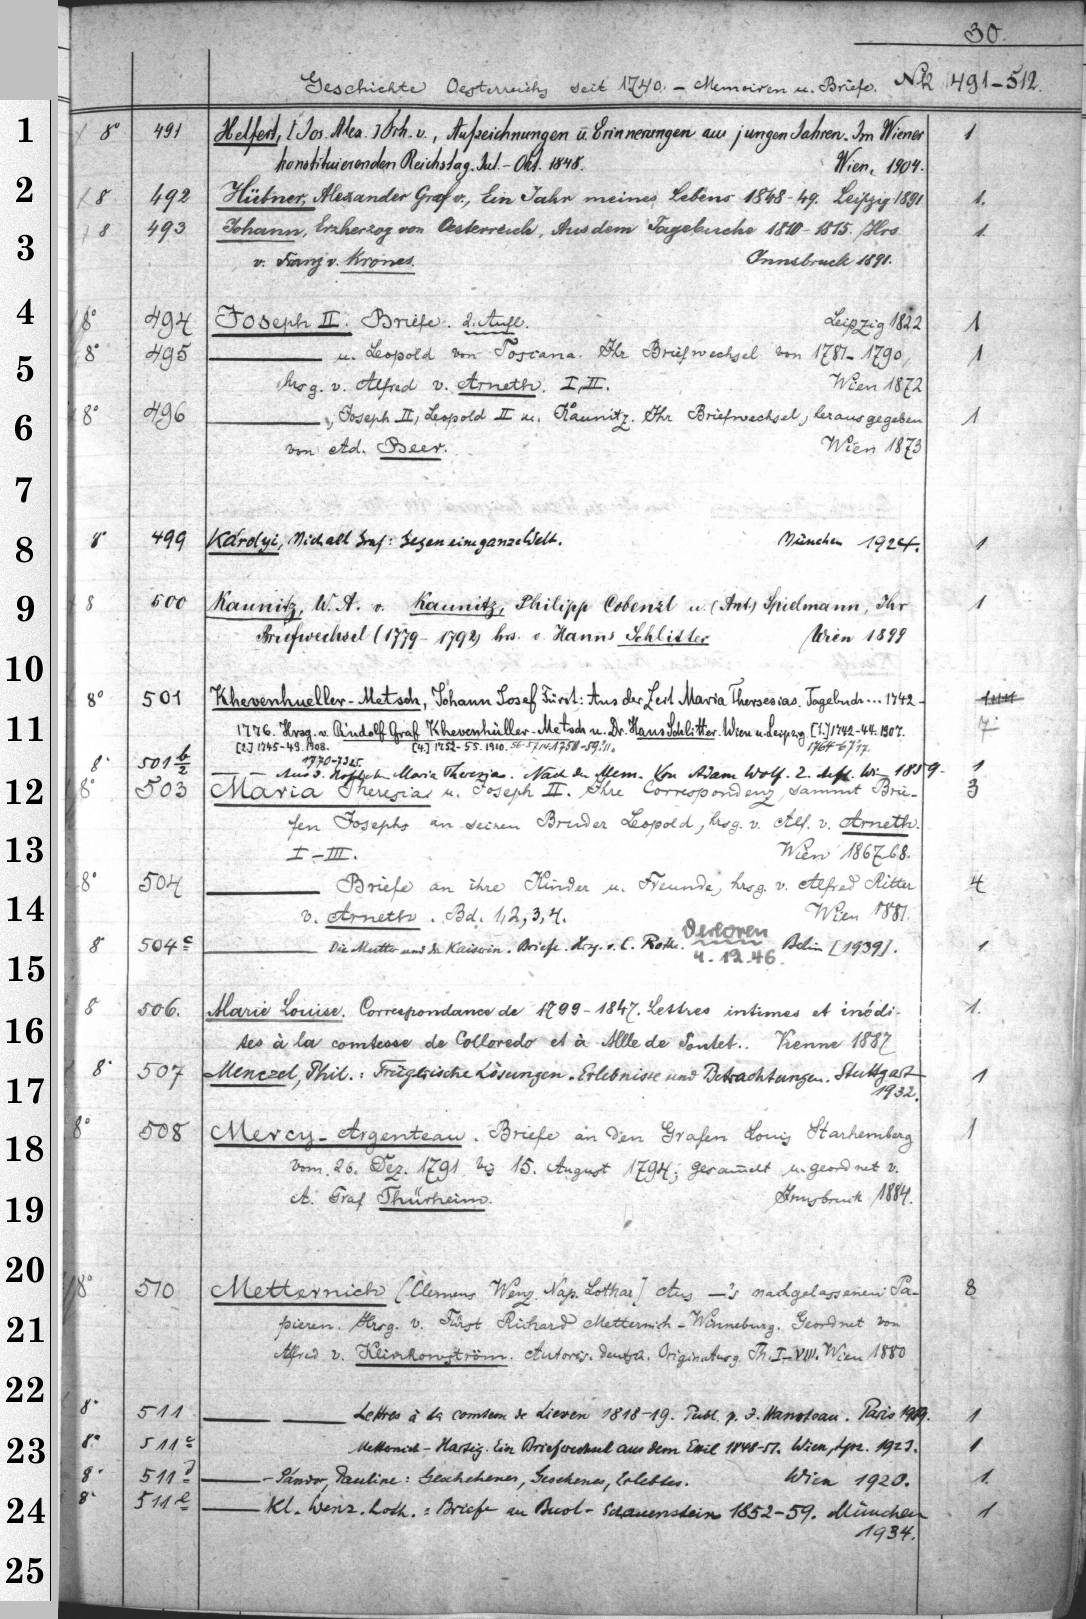 30.
Geschichte Oesterreichs seit 1740. – Memoiren u. Briefe. No 491–512.
1
8° 491 Helfert, [Jos. Alex.] Frh. v., Aufzeichnungen u. Erinnerungen aus jungen Jahren. Im Wiener 1
konstituierenden Reichstag. Jul.–Okt. 1848. Wien, 1904.
2
8 492 Hübner, Alexander Graf v., Ein Jahr meines Lebens 1848–49. Leipzig 1891 1.
8 493 Johann, Erzherzog von Oesterreich, Aus dem Tagebuche 1810–1815. Hrs 1
3
v. Franz v. Krones. Innsbruck 1891.
4
8° 494 Joseph II. Briefe. 2. Aufl. Leipzig 1822 1
8° 495 ——— u. Leopold von Toscana. Ihr Briefwechsel von 1781–1790, 1
5
hrsg. v. Alfred v. Arneth. I, II. Wien 1872
8° 496 ———, Joseph II, Leopold II u. Kaunitz. Ihr Briefwechsel, herausgegeben 1
6
von Ad. Beer. Wien 1873
7
8° 499 Károlyi, Michael Graf: Gegen eine ganze Welt. München 1924. 1
8
8 500 Kaunitz, W. A. v. Kaunitz, Philipp Cobenzl u. (Ant) Spielmann, Ihr 1
9
Briefwechsel (1779–1792) hrs. v. Hanns Schlitter Wien 1899
10
8° 501 Khevenhueller-Metsch, Johann Josef Fürst: Aus der Zeit Maria Theresias. Tagebuch... 1742–
11
1776. Hrsg. v. Rudolf Graf Khevenhüller-Metsch u. Dr. Hans Schlitter. Wien u. Leipzig [1.] 1742–44. 1907. 7.
[2.] 1745–49. 1908. [4.] 1752–55. 1910. 1758–59. 11. 1764–67 17.
1770–73 25.
8° 501 b/2 —— Aus d. Hofleben Maria Theresias. Nach den Mem. Von Adam Wolf. 2. Aufl. Wi– 1859. 1
12
8° 503 Maria Theresias u. Joseph II. Ihre Correspondenz, sammt Brie- 3
fen Josephs an seinen Bruder Leopold, hrsg. v. Alf. v. Arneth.
13
I–III. Wien 1867–68.
8° 504 ——— Briefe an ihre Kinder u. Freunde, hrsg. v. Alfred Ritter 4
14
v. Arneth. Bd. 1, 2, 3, 4. Wien 1881.
8 504c ——— Die Mutter und die Kaiserin. Briefe. Hrg. v. C. Rothe. Verloren Berlin [1939]. 1
4.12.46
15
8 506. Marie Louise. Correspondance de 1799–1847. Lettres intimes et inédi- 1.
16
tes à la comtesse de Colloredo et à Mlle de Poutet.. Vienne 1887
8° 507 Menczel, Phil.: Trügerische Lösungen. Erlebnisse und Betrachtungen. Stuttgart 1
17
1932.
8° 508 Mercy-Argenteau. Briefe an den Grafen Louis Starhemberg 1
18
vom 26. Dez. 1791 bis 15. August 1794; gesammelt u. geordnet v.
19
A. Graf Thürheim. Innsbruck 1884.
20
8° 510 Metternich [Clemens Wenz. Nap. Lothar] Aus —'s nachgelassenen Pa- 8
21
pieren. Hrsg. v. Fürst Richard Metternich-Winneburg. Geordnet von
Alfred v. Klinkowström. Autoris. deutsch. Originalausg. Th. I–VIII. Wien 1880
22
8° 511 —— —— Lettres à la comtesse de Lieven 1818–19. Publ. p. J. Hanoteau. Paris 1909. 1
23
8° 511c Metternich–Hartig. Ein Briefwechsel aus dem Exil 1848–51. Wien, Lpz. 1923. 1
8° 511d ——– Sándor, Pauline: Geschehenes, Gesehenes, Erlebtes. Wien 1920. 1.
24
8° 511e —— Kl. Wenz. Loth.: Briefe an Buol-Schauenstein 1852–59. München 1
1934.
25